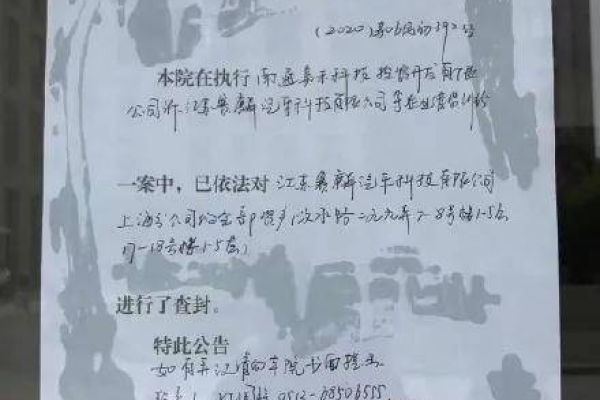 (2020)苏06民初392号
本院在执行南通嘉禾科技投资开发有限
公司诉江苏赛麟汽车科技有限公司等企业借贷纠纷
一案中，已依法对江苏赛麟汽车科技有限公司
上海分公司
水路二九九弄7-8号楼1-5层
18号楼1-5层)
进行了查封。
特此公告
如有异议请向本院书面提出
0513-